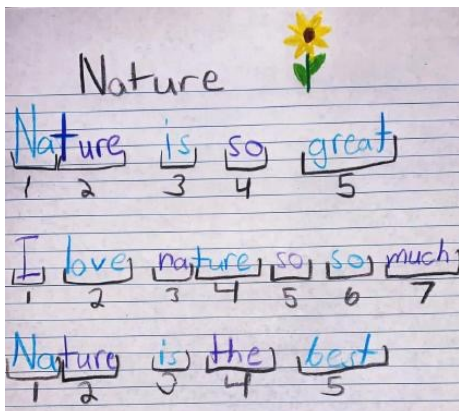 Nature
Nature is so great
1 2 3 4 5
I love nature so so much
1 2 3 4 5 6 7
Nature is the best
1 2 3 4 5